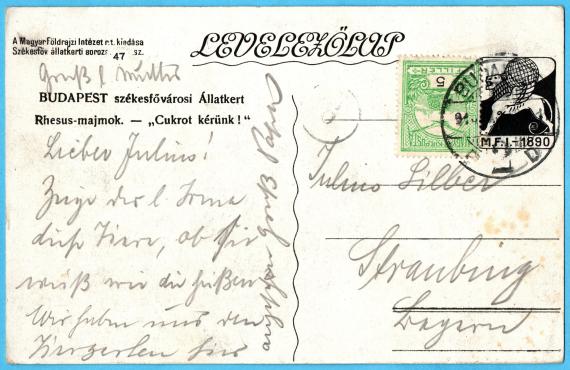 A Magyar Földrajzi Intézet r.t. kiadása
Székesföv állatkerti soroz. sz.
47
LEVELEZŐLAP
Gruß l. Mutter
BUDAPEST székesfővárosi Állatkert
Rhesus-majmok. — „Cukrot kérünk!"
Lieber Julius!
Zeige der l. Irma
diese Tiere, ob sie
weiß wie die heißen
Wir haben uns den
Tiergarten hier
angesehen Gruß Papa
5
M.F.I.-1890
Julius Silber
Straubing
Bayern